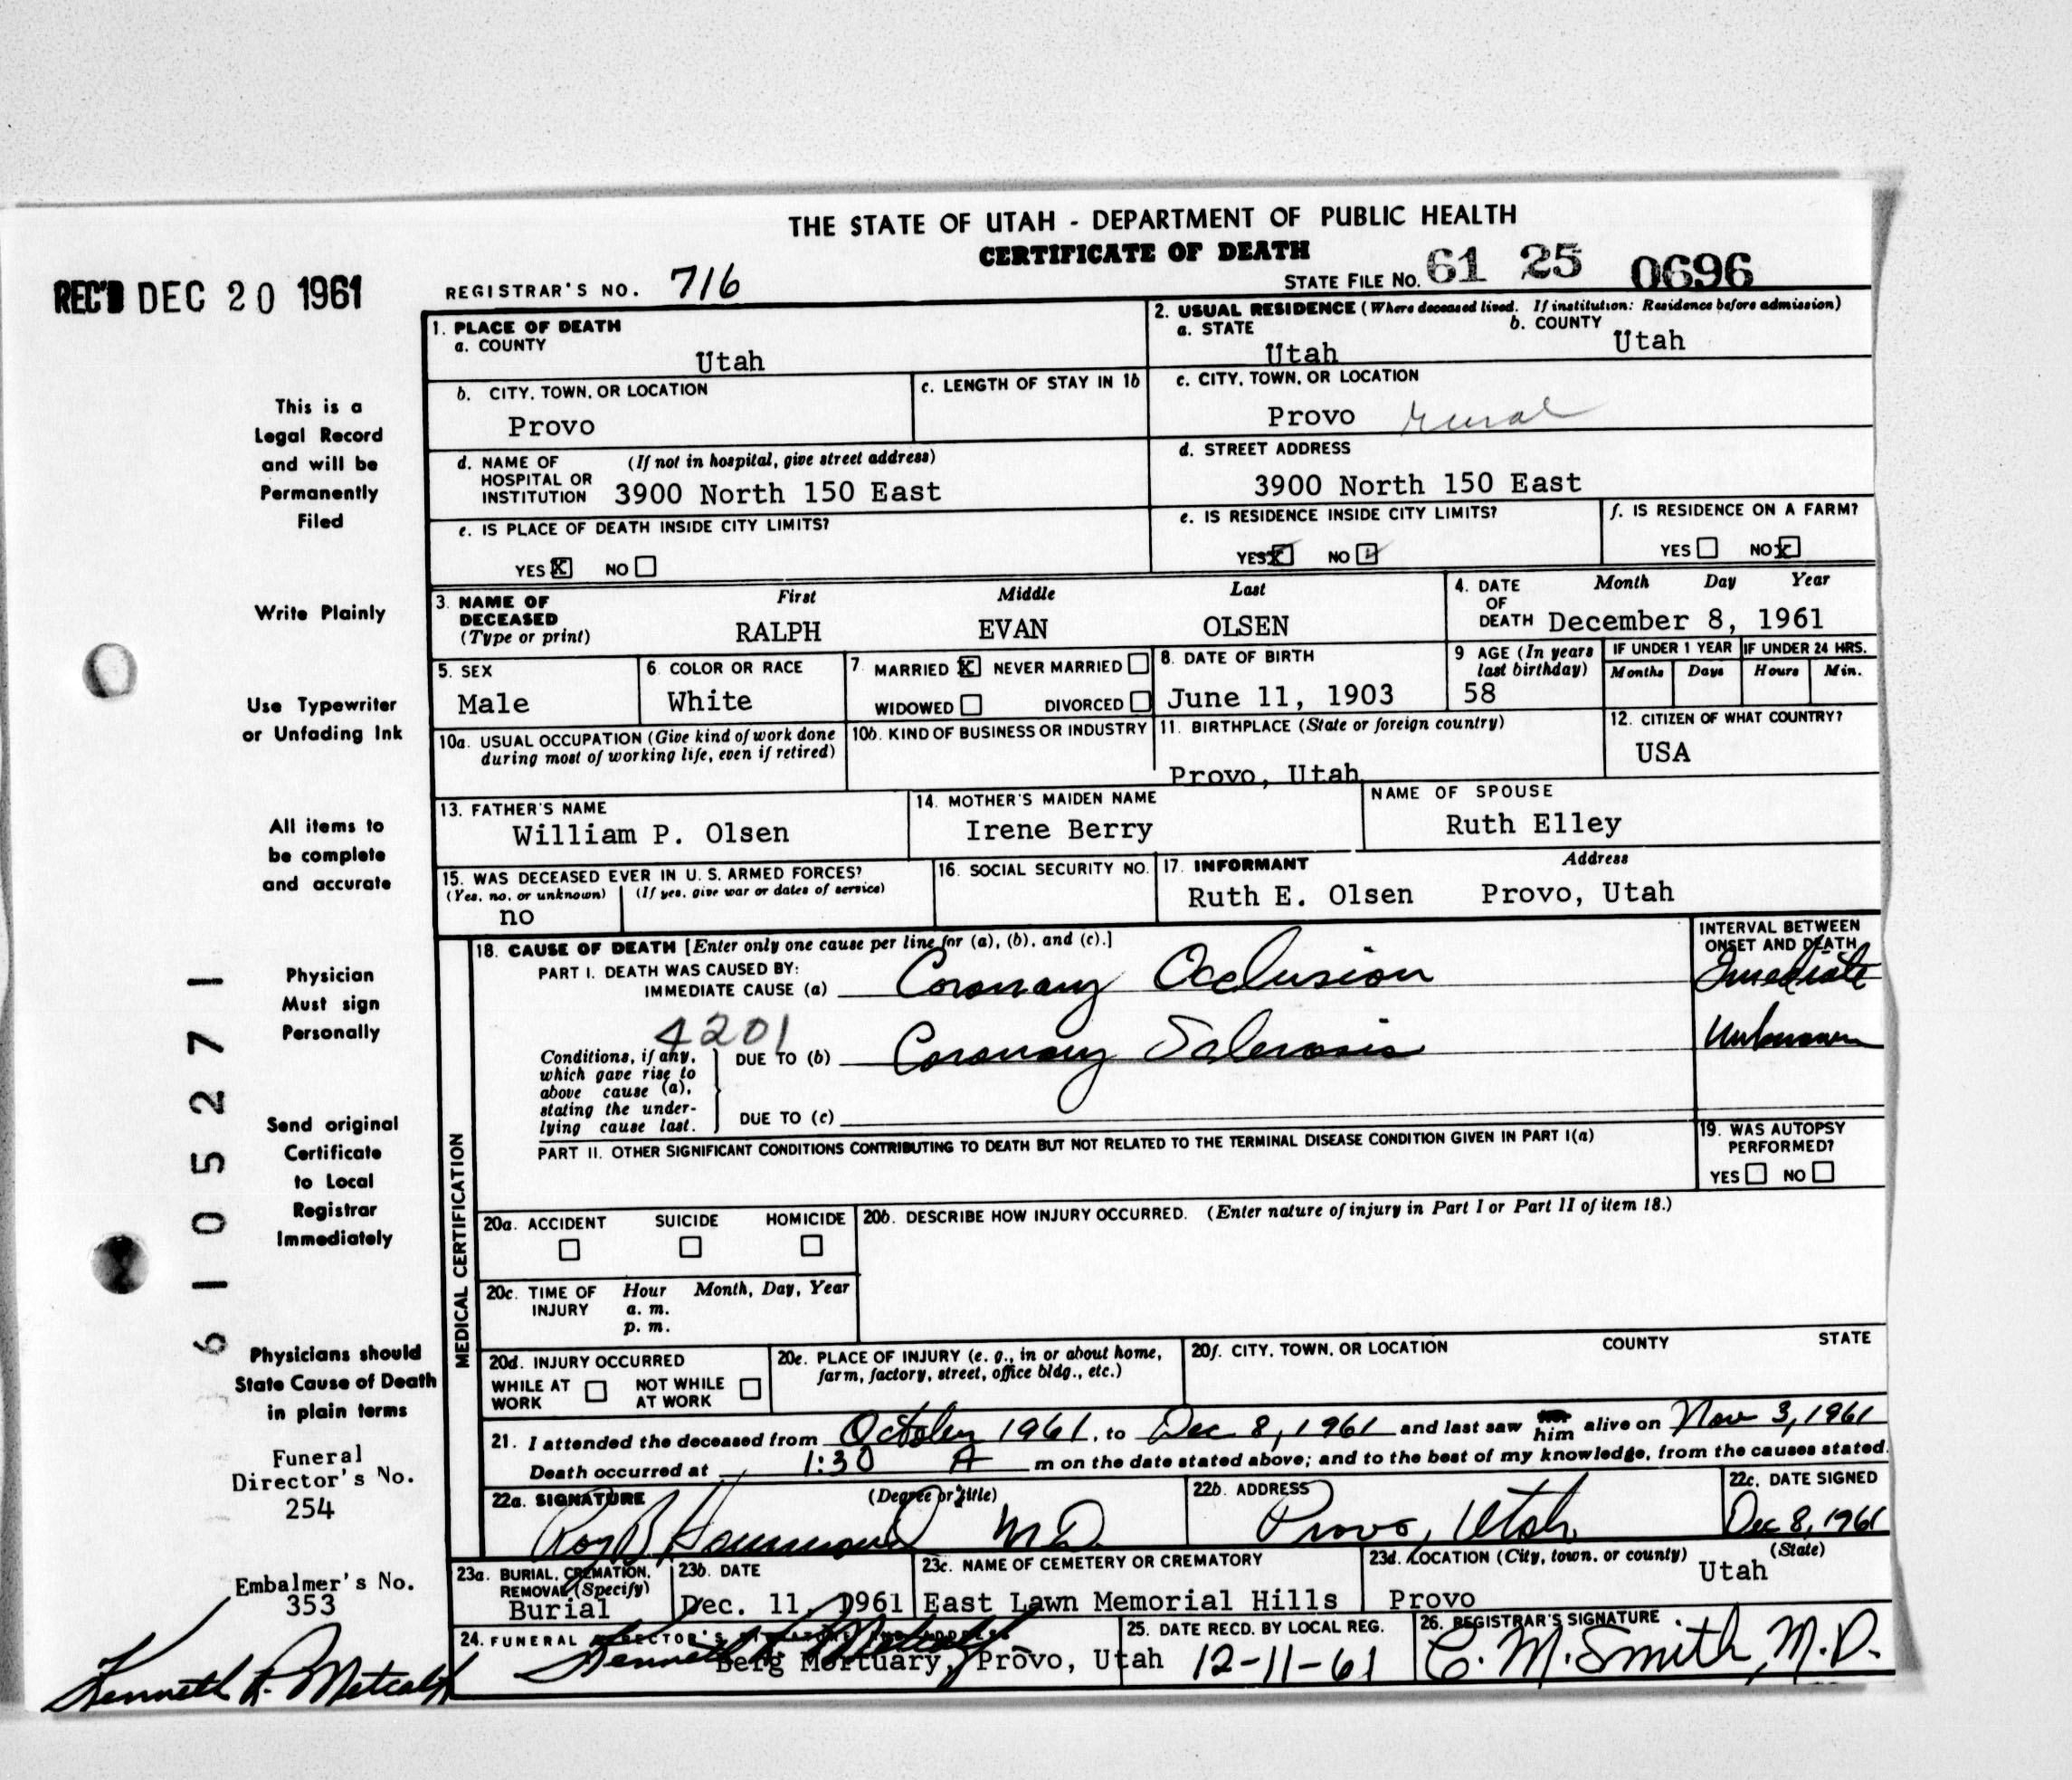 THE STATE OF UTAH - DEPARTMENT OF PUBLIC HEALTH
CERTIFICATE OF DEATH
REC'D DEC 20 1961
REGISTRAR'S NO. 716
STATE FILE NO. 61 25 0696
1. PLACE OF DEATH
a. COUNTY
Utah
2. USUAL RESIDENCE (Where deceased lived. If institution: Residence before admission)
a. STATE
Utah
b. COUNTY
Utah
b. CITY, TOWN, OR LOCATION
Provo
c. LENGTH OF STAY IN 1b
c. CITY, TOWN, OR LOCATION
Provo rural
d. NAME OF HOSPITAL OR INSTITUTION (If not in hospital, give street address)
3900 North 150 East
d. STREET ADDRESS
3900 North 150 East
e. IS PLACE OF DEATH INSIDE CITY LIMITS?
YES X NO
e. IS RESIDENCE INSIDE CITY LIMITS?
YES X NO
f. IS RESIDENCE ON A FARM?
YES NO X
3. NAME OF DECEASED (Type or print)
First Middle Last
RALPH EVAN OLSEN
4. DATE OF DEATH
Month Day Year
December 8, 1961
5. SEX
Male
6. COLOR OR RACE
White
7. MARRIED X NEVER MARRIED
WIDOWED DIVORCED
8. DATE OF BIRTH
June 11, 1903
9 AGE (In years last birthday)
58
IF UNDER 1 YEAR
Months Days
IF UNDER 24 HRS.
Hours Min.
10a. USUAL OCCUPATION (Give kind of work done during most of working life, even if retired)
10b. KIND OF BUSINESS OR INDUSTRY
11. BIRTHPLACE (State or foreign country)
Provo, Utah
12. CITIZEN OF WHAT COUNTRY?
USA
13. FATHER'S NAME
William P. Olsen
14. MOTHER'S MAIDEN NAME
Irene Berry
NAME OF SPOUSE
Ruth Elley
15. WAS DECEASED EVER IN U. S. ARMED FORCES?
(Yes, no, or unknown) (If yes, give war or dates of service)
no
16. SOCIAL SECURITY NO.
17. INFORMANT Address
Ruth E. Olsen Provo, Utah
MEDICAL CERTIFICATION
18. CAUSE OF DEATH [Enter only one cause per line for (a), (b), and (c).]
INTERVAL BETWEEN ONSET AND DEATH
PART I. DEATH WAS CAUSED BY:
IMMEDIATE CAUSE (a) Coronary Occlusion
Imediate
4201
Conditions, if any, which gave rise to above cause (a), stating the underlying cause last.
DUE TO (b) Coronary Sclerosis
Unknown
DUE TO (c)
PART II. OTHER SIGNIFICANT CONDITIONS CONTRIBUTING TO DEATH BUT NOT RELATED TO THE TERMINAL DISEASE CONDITION GIVEN IN PART I(a)
19. WAS AUTOPSY PERFORMED?
YES NO
20a. ACCIDENT SUICIDE HOMICIDE
20b. DESCRIBE HOW INJURY OCCURRED. (Enter nature of injury in Part I or Part II of item 18.)
20c. TIME OF INJURY
Hour Month, Day, Year
a. m.
p. m.
20d. INJURY OCCURRED
WHILE AT WORK NOT WHILE AT WORK
20e. PLACE OF INJURY (e. g., in or about home, farm, factory, street, office bldg., etc.)
20f. CITY, TOWN, OR LOCATION COUNTY STATE
21. I attended the deceased from October 1961, to Dec 8, 1961 and last saw him alive on Nov 3, 1961
Death occurred at 1:30 A m on the date stated above; and to the best of my knowledge, from the causes stated.
22a. SIGNATURE (Degree or title)
Roy B. Hammond M.D.
22b. ADDRESS
Provo, Utah
22c. DATE SIGNED
Dec 8, 1961
23a. BURIAL, CREMATION, REMOVAL (Specify)
Burial
23b. DATE
Dec. 11, 1961
23c. NAME OF CEMETERY OR CREMATORY
East Lawn Memorial Hills
23d. LOCATION (City, town, or county) (State)
Provo Utah
24. FUNERAL DIRECTOR'S SIGNATURE AND ADDRESS
Kenneth R. Metcalf
Berg Mortuary, Provo, Utah
25. DATE RECD. BY LOCAL REG.
12-11-61
26. REGISTRAR'S SIGNATURE
C. M. Smith, M.D.
This is a
Legal Record
and will be
Permanently
Filed
Write Plainly
Use Typewriter
or Unfading Ink
All items to
be complete
and accurate
Physician
Must sign
Personally
Send original
Certificate
to Local
Registrar
Immediately
Physicians should
State Cause of Death
in plain terms
Funeral
Director's No.
254
Embalmer's No.
353
Kenneth R. Metcalf
6105271